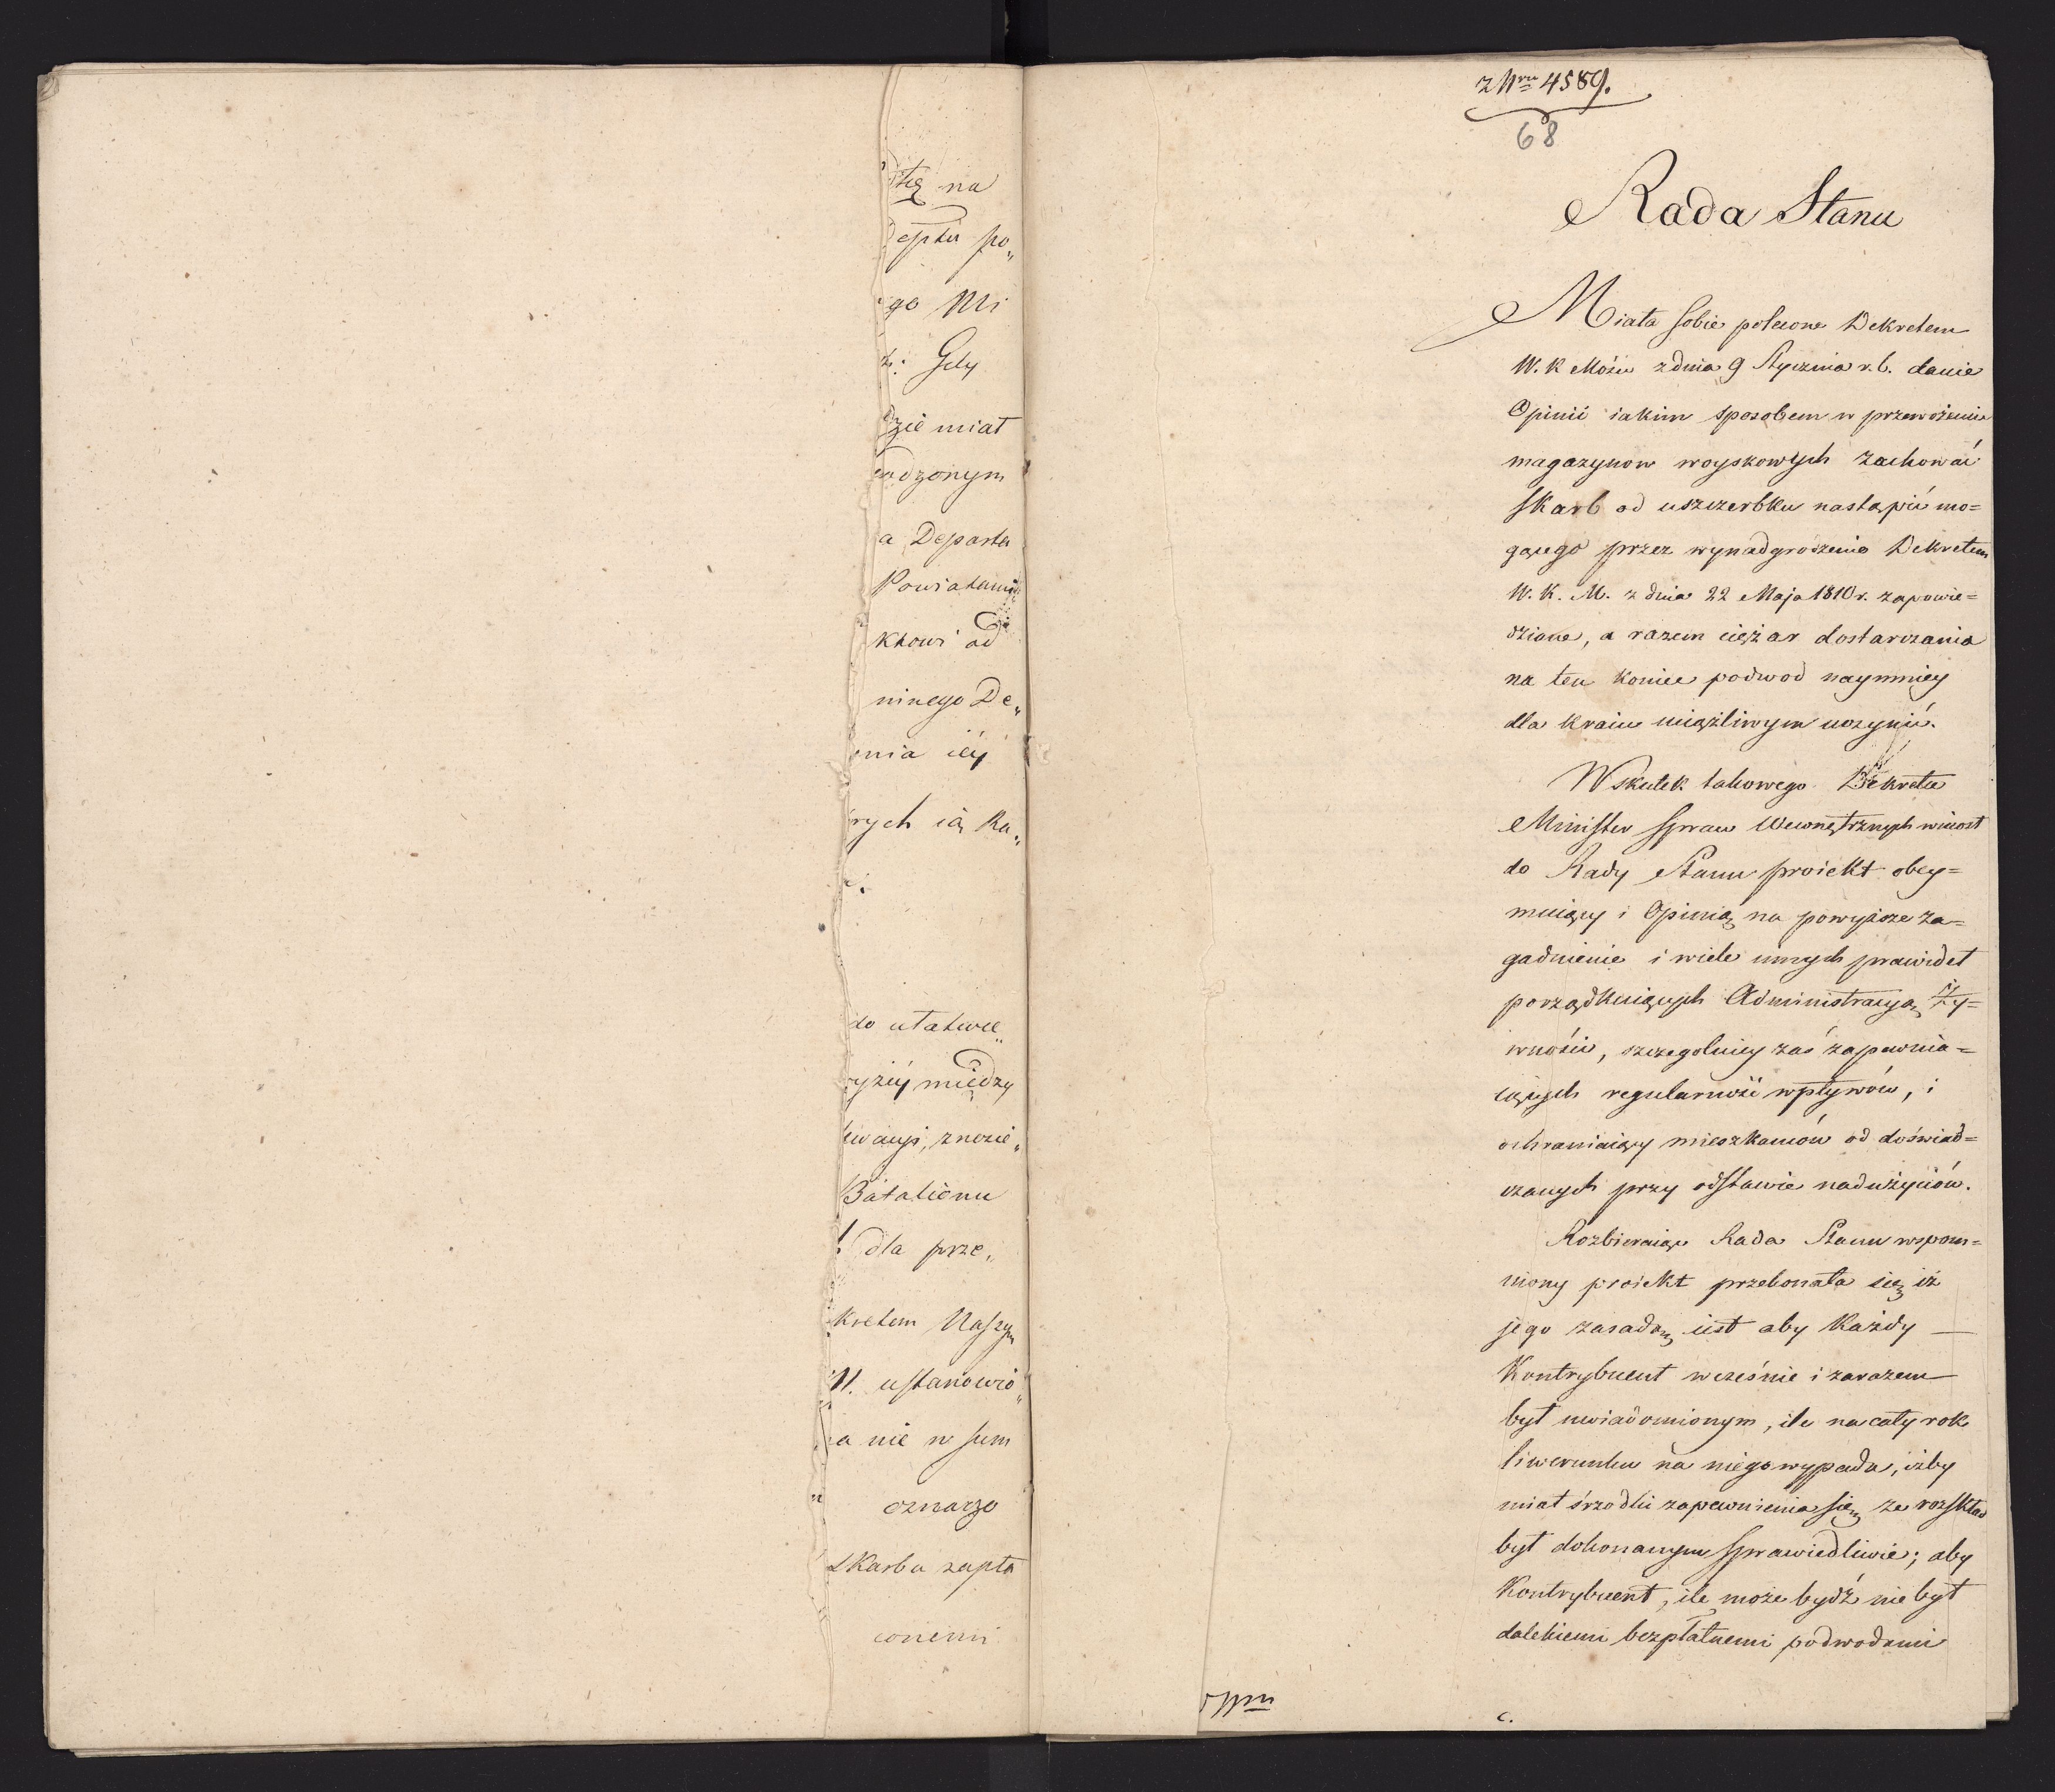 stę na
deptu po„
go Mi
Gdy
dzie miał
adzonym
a Departa
Powiatami
kkowi od
ninego De„
enia iéy
rych ią Ra„
do ułatwie„
yżéy między
liwacyi, znosie„
Batalionu
dla prze„
kretem Naszym
M. ustanowio„
a nie w sum
oznaczo
Skarbu zapła
conemi
z Nru 4589.
68
Rada Stanu
Miała sobie polecone Dekretem
W. K Mości z dnia 9 Stycznia r. b. danie
Opinii iakim sposobem w przewożeniu
magazynow woyskowych zachować
Skarb od uszczerbku nastąpić mo=
gącego przez wynadgrodzenie Dekretem
W. K. M. z dnia 22 Maja 1810 r. zapowie=
dziane, a razem ciężar dostarczania
na ten koniec podwod naymniey
dla kraiu uciążliwym uczynić.
W skutek takowego Dekretu
Minister Spraw Wewnętrznych wniosł
do Rady Stanu proiekt obey=
muiący i Opinią na powyższe za=
gadnienie i wiele innych prawideł
porządkuiących Administracyą ży=
wności, szczegolniey zaś zapewnia=
iących regularność wpływów, i
ochraniaiący mieszkańców od doświad=
czanych przy odstawie nadużyciów.
Rozbieraiąc Rada Stanu wspom=
niony proiekt przekonała się iż
jego zasadą iest aby Każdy —
Kontrybuent wcześnie i zarazem
był uwiadomionym, ile na cały rok
liwerunku na niego wypada, iżby
miał śrzodki zapewnienia się ze rozkład
był dokonanym Sprawiedliwie; aby
Kontrybuent, ile może bydź nie był
dalekiemi bezpłatnemi podwodami
c.